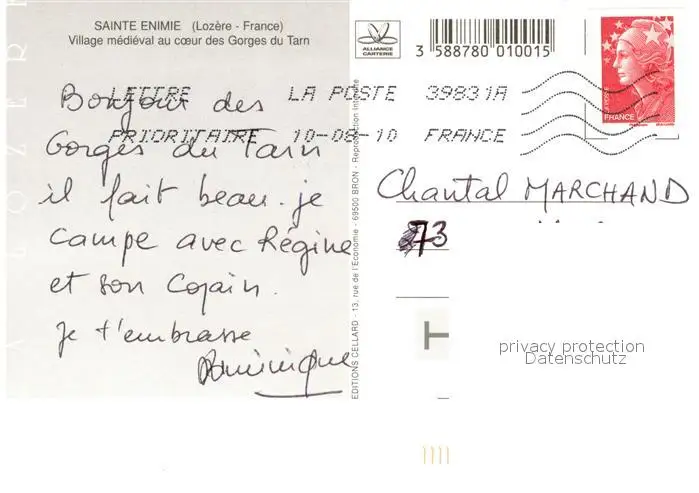 SAINTE ENIMIE (Lozère - France)
Village médiéval au cœur des Gorges du Tarn
ALLIANCE
CARTERIE
3 588780 010015
FRANCE
LETTRE LA POSTE 39831A
PRIORITAIRE 10-08-10 FRANCE
Bonjour des
Gorges du Tarn
il fait beau. je
campe avec Régine
et son Copain.
je t'embrasse
Dominique
EDITIONS CELLARD - 13, rue de l'Economie - 69500 BRON - Reproduction Interdite
Chantal MARCHAND
73
privacy protection
Datenschutz